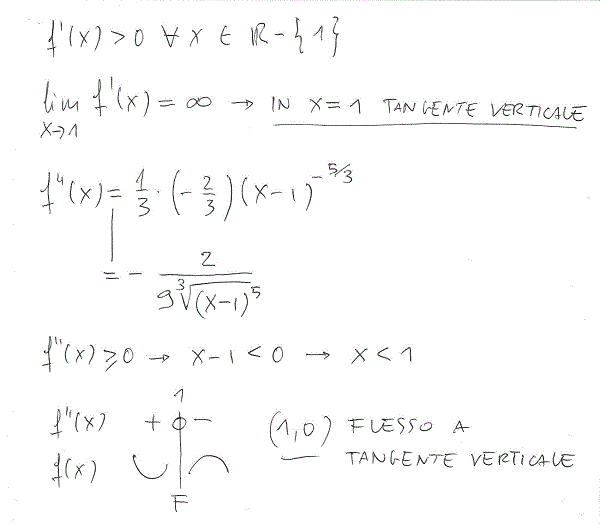 f'(x) > 0 ∀ x ∈ ℝ - {1}
lim f'(x) = ∞ → IN X=1 TANGENTE VERTICALE
x→1
f"(x) = 1/3 · (-2/3)(x-1)^-5/3
= - 2/(9∛(x-1)^5)
f"(x) ≥ 0 → x-1 < 0 → x < 1
1
f"(x) + -
(1,0) FLESSO A
f(x)
TANGENTE VERTICALE
F